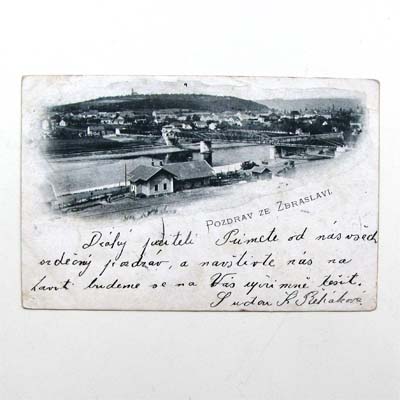 POZDRAV ZE ZBRASLAVI.
Drahý příteli Přimete od nás všech
srdečný pozdrav, a navštivte nás na
budeme se na Vás upřímně těšit.
S udou K Řeháková.